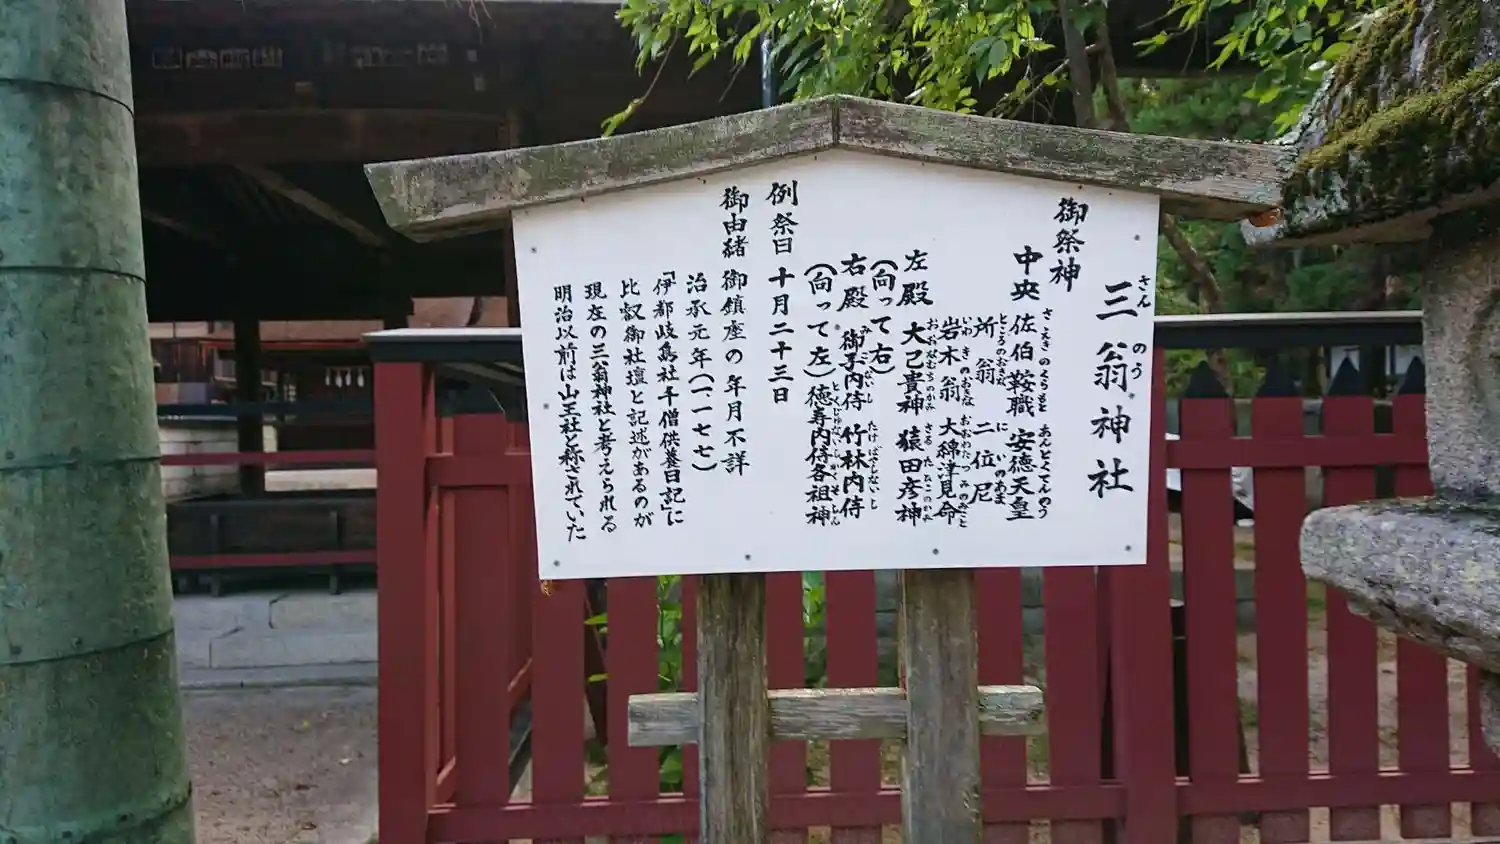 三翁神社
御祭神
中央 佐伯鞍職 安徳天皇
所翁 二位尼
岩木翁 大綿津見命
左殿 大己貴神 猿田彦神
(向って右)
右殿 御子内侍 竹林内侍
(向って左) 徳寿内侍各祖神
例祭日 十月二十三日
御由緒 御鎮座の年月不詳
治承元年(一一七七)
「伊都岐島社千僧供養日記」に
比叡御社壇と記述があるのが
現在の三翁神社と考えられる
明治以前は山王社と称されていた